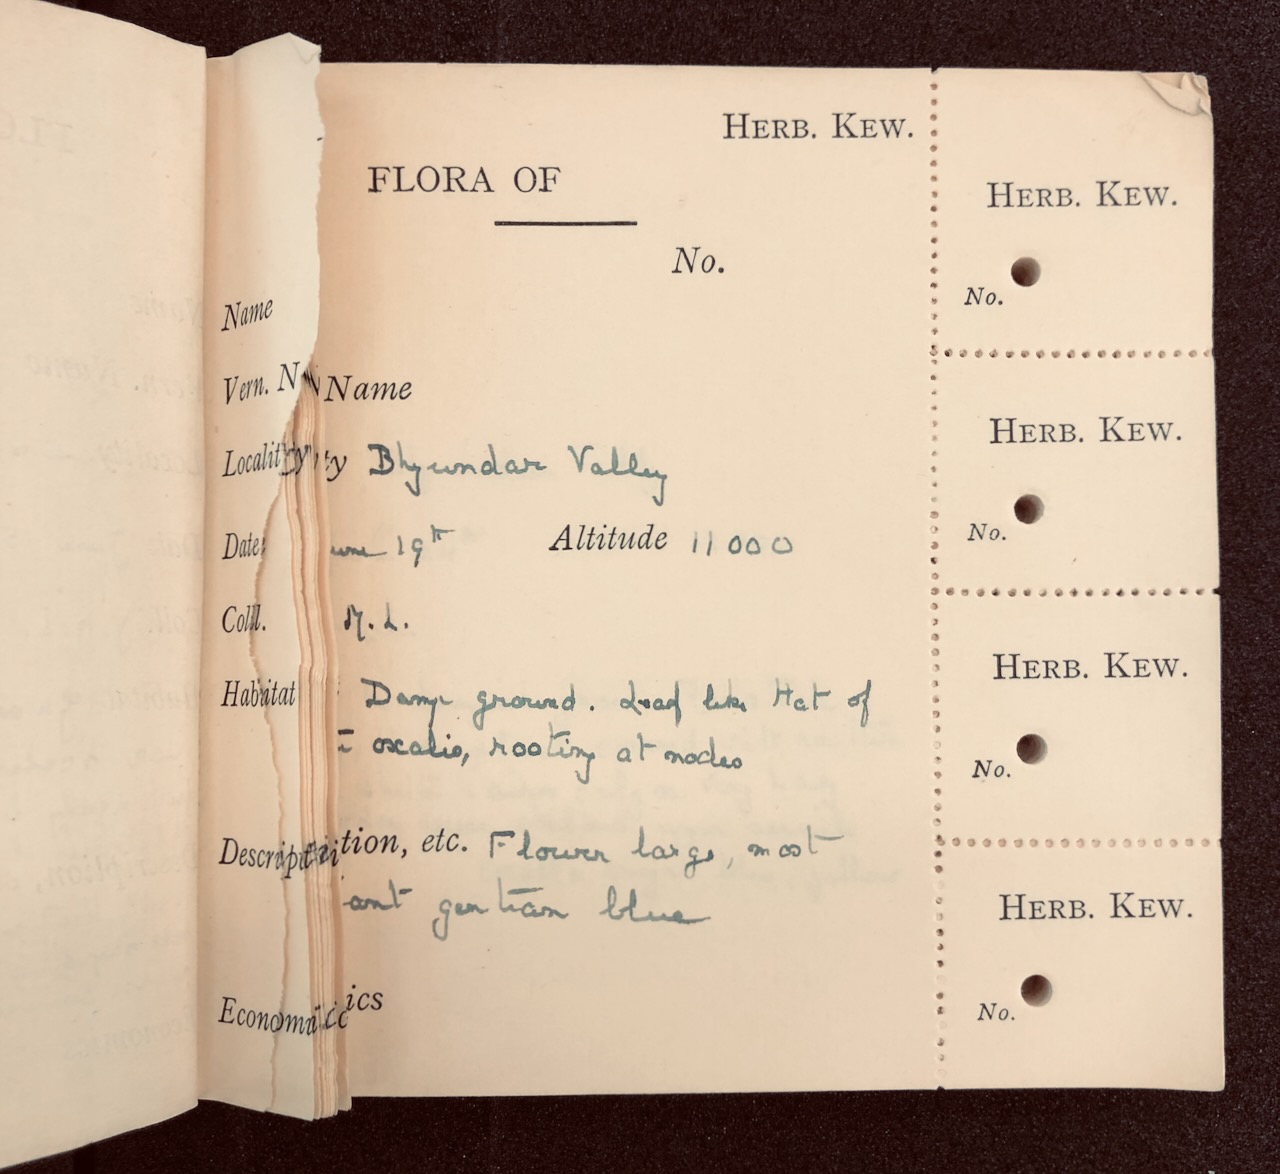 HERB. KEW.
FLORA OF
No.
Name
Vern. N Name
Locality ty Bhyundar Valley
Date une 19th Altitude 11 000
Coll. M. L.
Habitat Damp ground. Leaf like that of
oxalis, rooting at nodes
Description, etc. Flower large, most
ant gentian blue
Economic ics
HERB. KEW.
No.
HERB. KEW.
No.
HERB. KEW.
No.
HERB. KEW.
No.